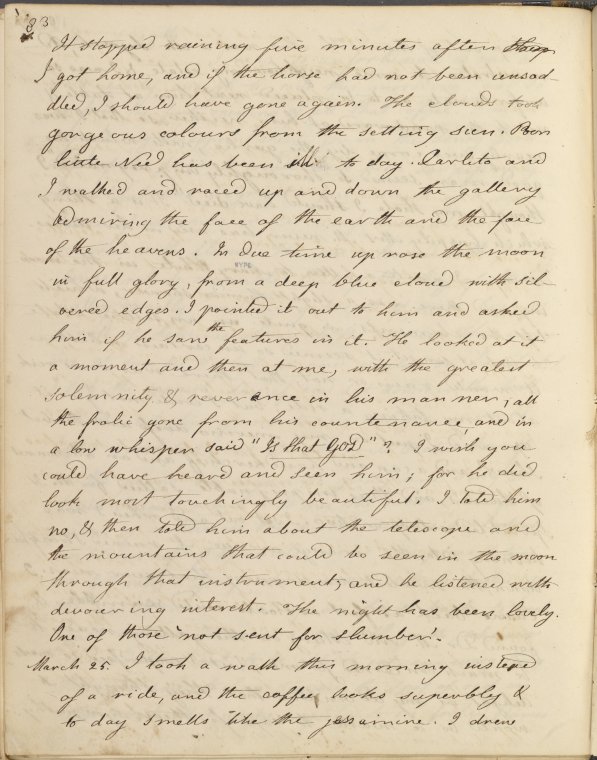 83
It stopped raining five minutes after
I got home, and if the horse had not been unsad-
dled, I should have gone again. The clouds took
gorgeous colours from the setting sun. Poor
little Ned has been ill to day. Carlito and
I walked and raced up and down the gallery
admiring the face of the earth and the face
of the heavens. In due time up rose the moon
NYPL
in full glory, from a deep blue cloud with sil-
vered edges. I pointed it out to him and asked
him if he saw the features in it. He looked at it
a moment and then at me, with the greatest
solemnity & reverence in his manner, all
the frolic gone from his countenance, and in
a low whisper said "Is that GOD"? I wish you
could have heard and seen him; for he did
look most touchingly beautiful. I told him
no, & then told him about the telescope and
the mountains that could be seen in the moon
through that instrument, and he listened with
devouring interest. The night has been lovely.
One of those "not sent for slumber".
March 25. I took a walk this morning instead
of a ride, and the coffee looks superbly &
to day smells like the jessamine. I drew